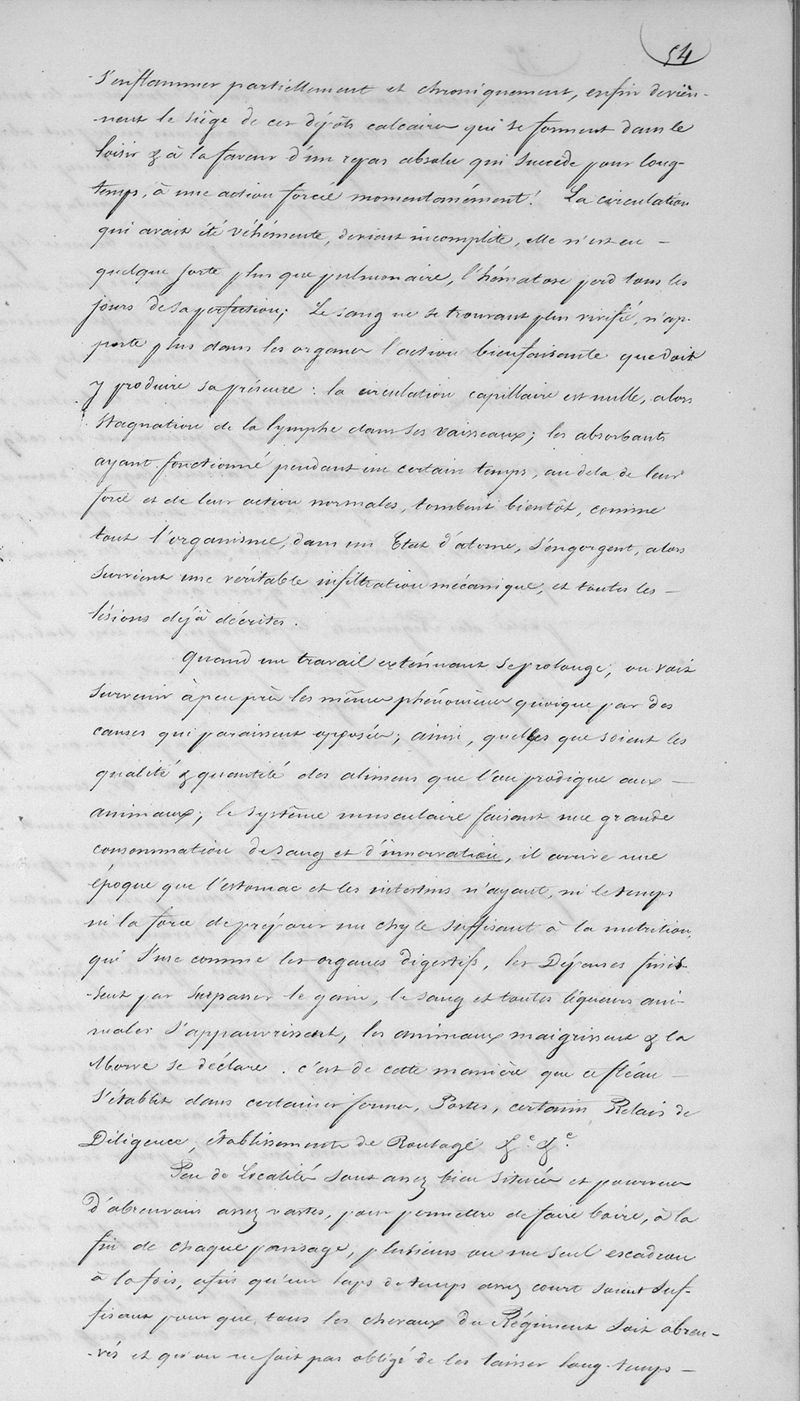 54
s'enflammer partiellement et chroniquement, enfin devien-
-nent le siège de ces dépôts calcaires qui se forment dans le
loisir & à la faveur d'un repas absolu qui succède pour long-
temps, à une action forcée momentanément! La circulation
qui avait été véhémente, devient incomplète, elle n'est en —
quelque sorte plus que pulmonaire, l'hématose perd tous les
jours de sa perfection; Le sang ne se trouvant plus vivifié, n'ap-
porte plus dans les organes l'action bienfaisante que doit
y produire sa présence: la circulation capillaire est nulle, alors
stagnation de la lymphe dans ses vaisseaux; les absorbants
ayant fonctionné pendant un certain temps, au delà de leur
force et de leur action normales, tombent bientôt, comme
tout l'organisme, dans un Etat d'atonie, s'engorgent, alors
survient une véritable infiltration mécanique, et toutes les —
lésions déjà décrites.
Quand un travail exténuant se prolonge, on voit
survenir à peu près les mêmes phénomènes quoique par des
causes qui paraissent opposées; ainsi, quelles que soient les
qualité & quantité des alimens que l'on prodigue aux —
animaux; le système musculaire faisant une grande
consommation de sang et d'innervation, il arrive une
époque que l'estomac et les intestins n'ayant, ni le temps
ni la force de préparer un chyle suffisant à la nutrition,
qui s'use comme les organes digestifs, les Dépenses finis-
sent par surpasser le gain, le sang et toutes liqueurs ani-
males s'appauvrissent, les animaux maigrissent & la
Morve se déclare. c'est de cette manière que ce fléau —
s'établit dans certaines fermes, Postes, certains Relais de
Diligence, établissements de Roulage &c &c.
Peu de Localités sont assez bien situées et pourvues
d'abreuvoirs assez vastes, pour permettre de faire boire, à la
fin de chaque pansage, plusieurs ou un seul escadron
à la fois, afin qu'un laps de temps assez court soient suf-
fisant pour que tous les chevaux du Régiment soit abreu-
-vés et qu'on ne soit pas obligé de les laisser long-temps —